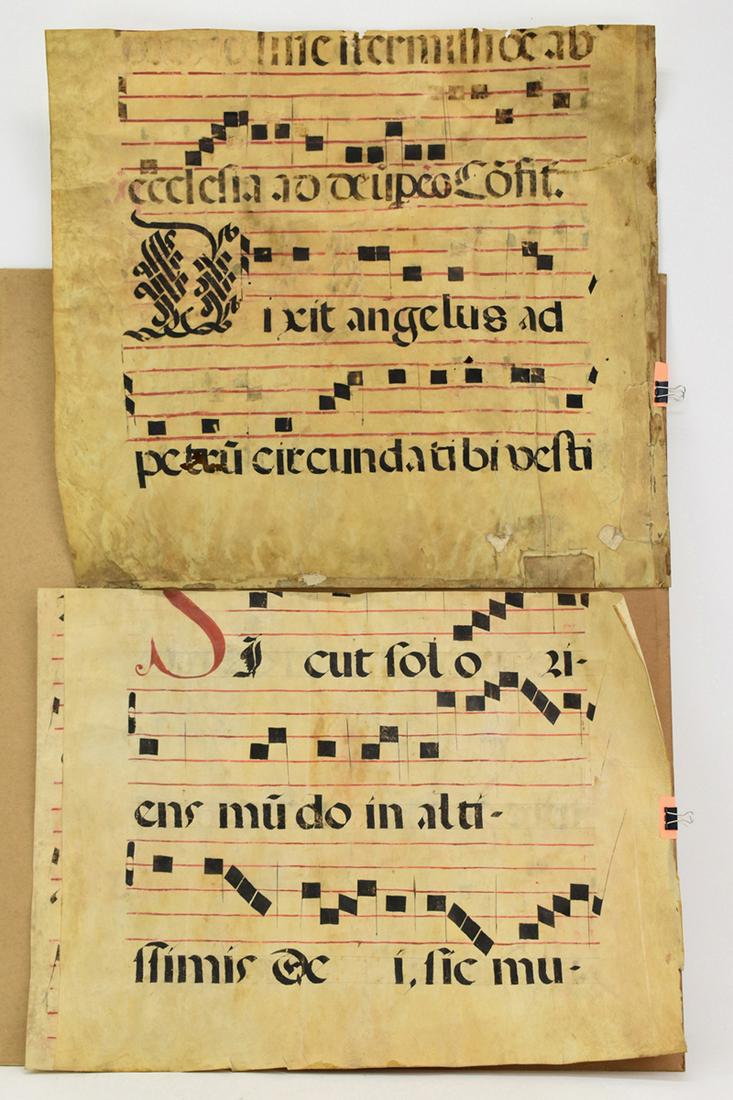 sine itermissiõe ab
ecclesia ad deũ p eo Cõfit.
Dixit angelus ad
petrũ circunda tibi vesti
Sicut sol ori-
ens mũdo in alti-
ssimis De i, sic mu-